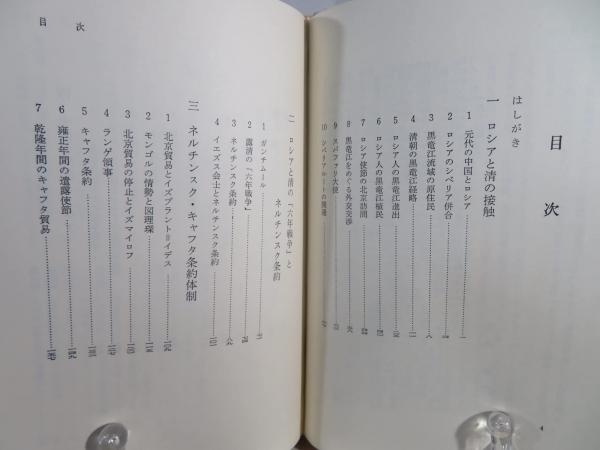 目次
はしがき
一 ロシアと清の接触
1 元代の中国とロシア
2 ロシアのシベリア併合
3 黒竜江流域の原住民
4 清朝の黒竜江経略
5 ロシア人の黒竜江進出
6 ロシア人の黒竜江植民
7 ロシア使節の北京訪問
8 黒竜江をめぐる外交交渉
9 スパファリ大使
10 シベリア・ルートの開通
4
目次
二 ロシアと清の「六年戦争」と
ネルチンスク条約
1 ガンチムール
2 露清の「六年戦争」
3 ネルチンスク条約
4 イエズス会士とネルチンスク条約
三 ネルチンスク・キャフタ条約体制
1 北京貿易とイズブラント=イデス
2 モンゴルの情勢と図理琛
3 北京貿易の停止とイズマイロフ
4 ランゲ領事
5 キャフタ条約
6 雍正年間の遣露使節
7 乾隆年間のキャフタ貿易